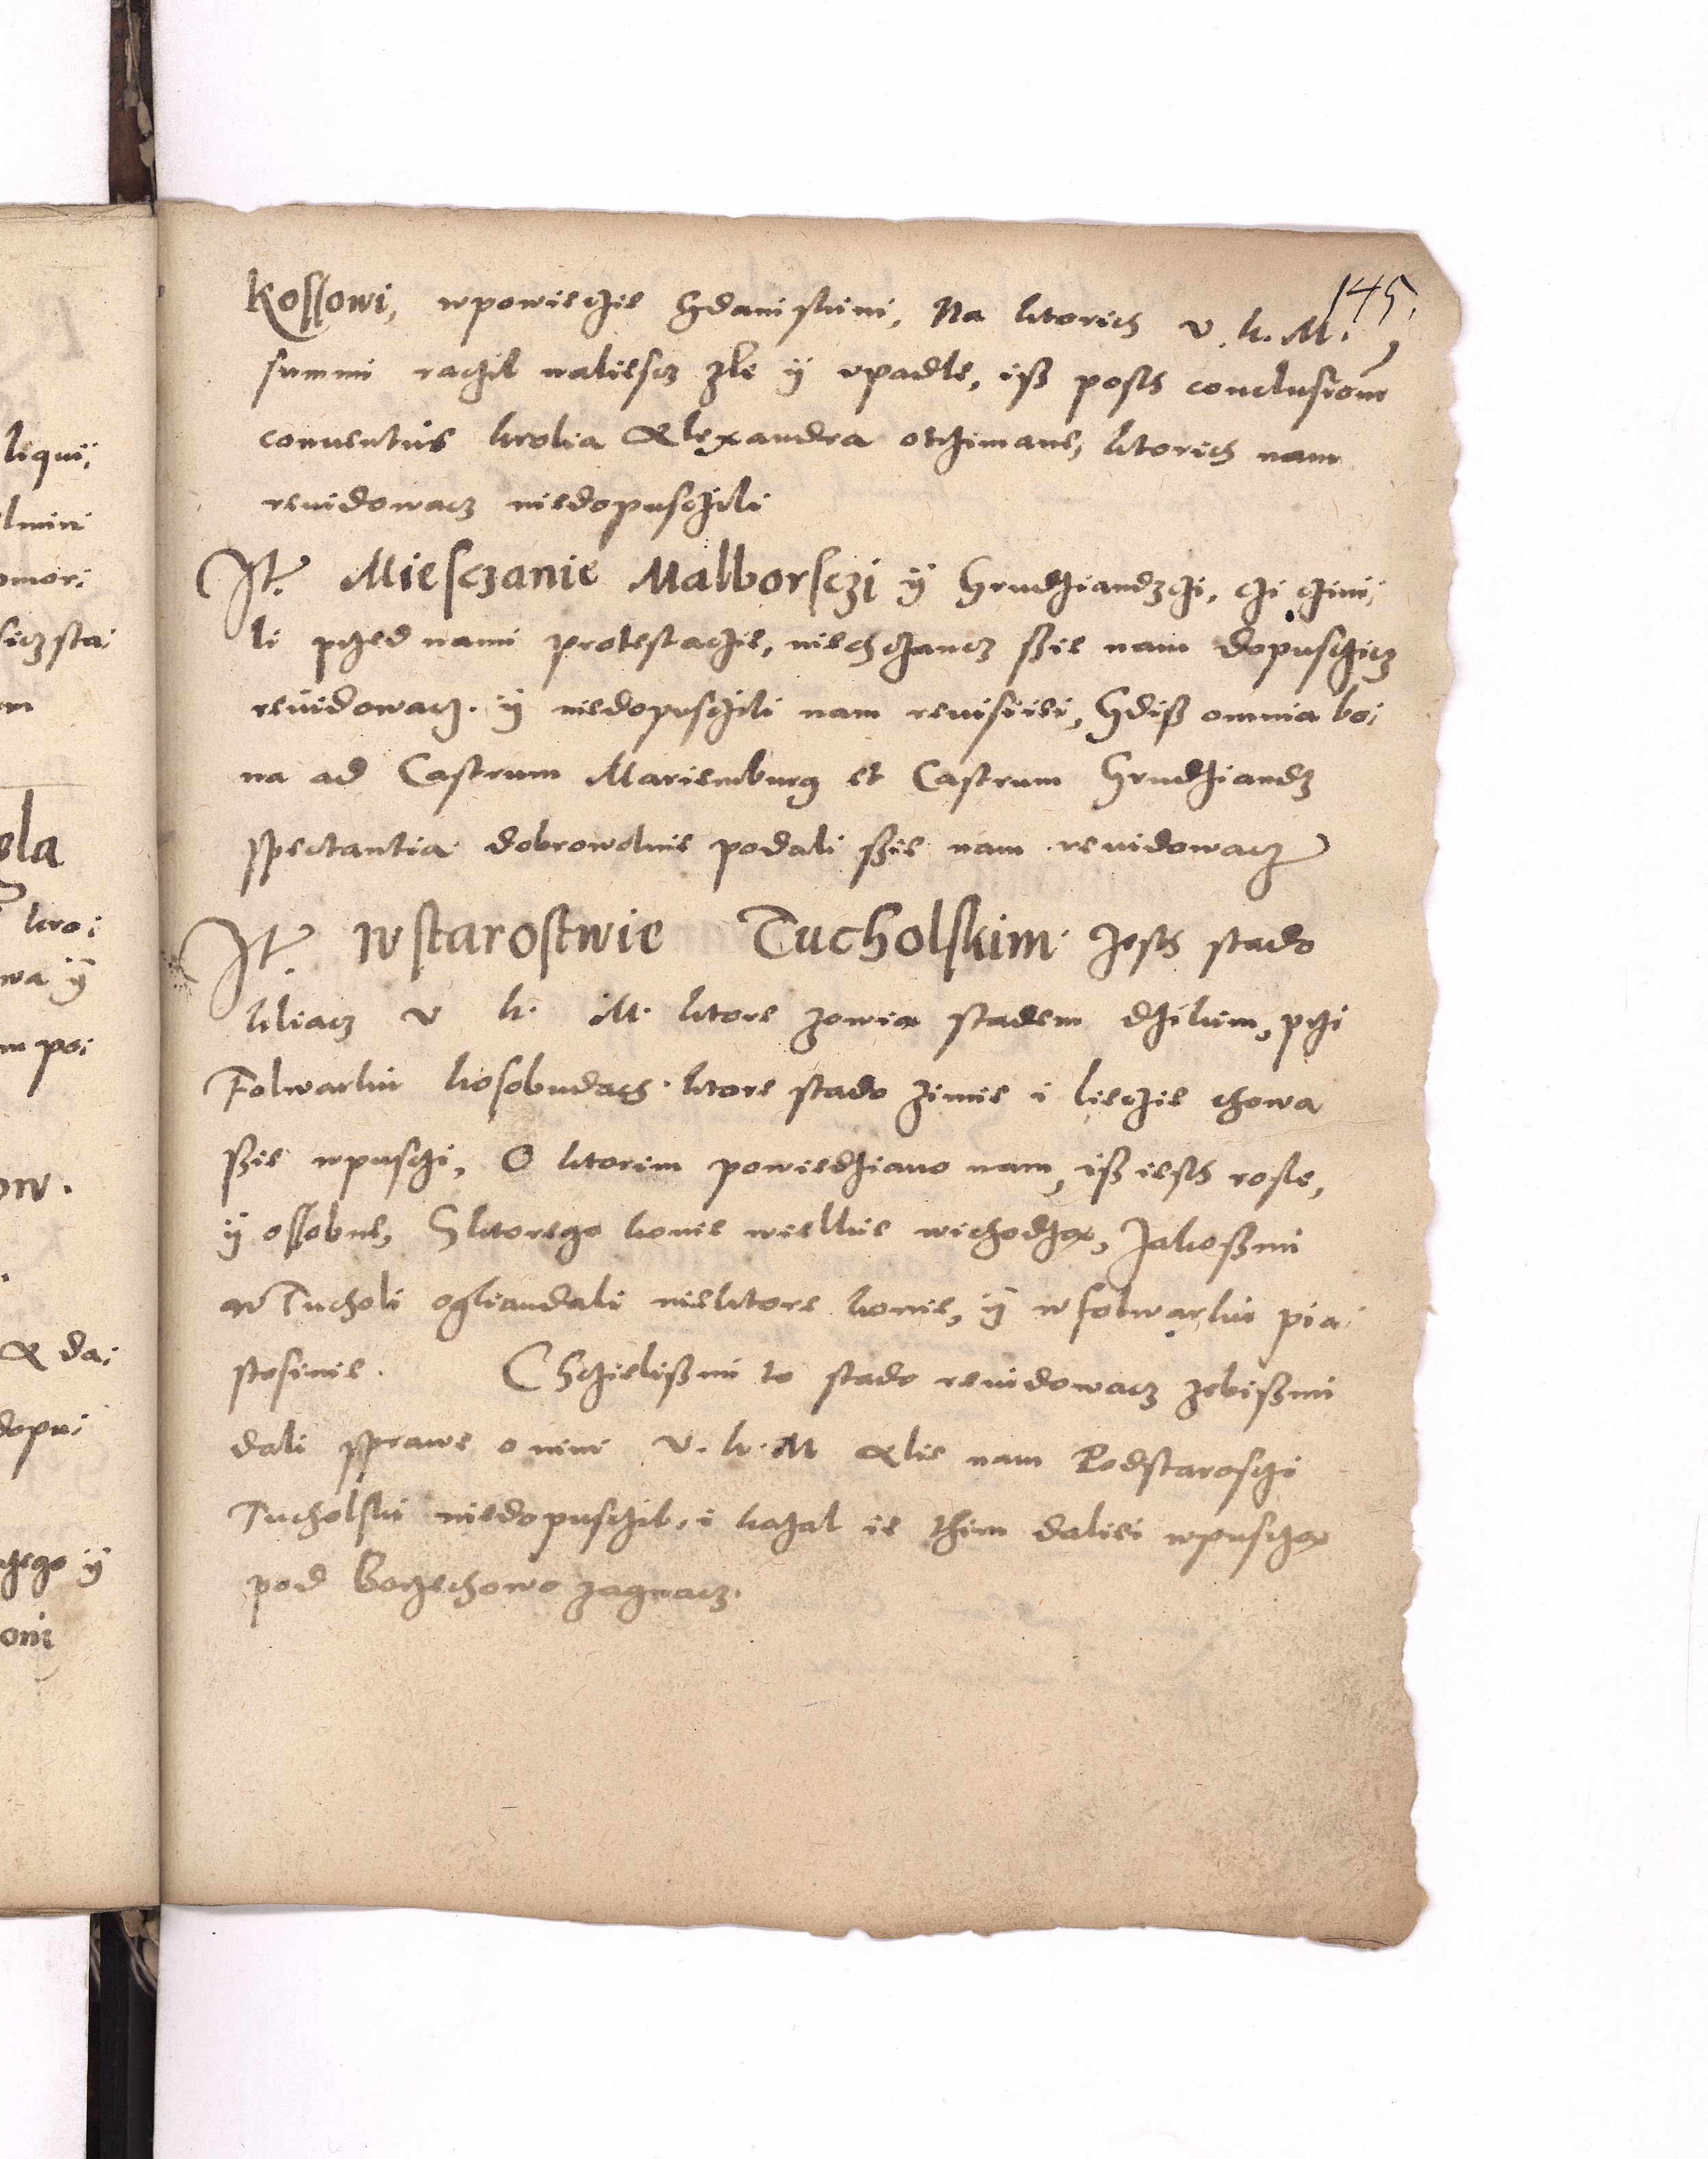 145.
Kossowi, wpowieczie Gdaniskimi, Na ktorich V. K. M.
summi raczil naliescz zle ÿ vpadle, iß posth conclusionem
conuentus krolia Alexandra otrzimane, ktorich nam
reuidowacz niedopusczili
It. Miesczanie Malborsczi ÿ Grudziandzczi, czi czini-
li przed nami protestaczie, niechczancz ßie nam dopusczicz
reuidowacz. ÿ niedopusczili nam reuisiiei, Gdiß omnia bo-
na ad Castrum Mariemburg et Castrum Grudziandz
spectantia dobrowolnie podali ßie nam reuidowacz
It. wstarostwie Tucholskim. Jesth stado
kliacz V K. M. ktore zowia stadem dzikim, przi
Folwarku kosobudach. ktore stado zimie i lieczie chowa
ßie wpusczi, O ktorim powiedziano nam, iß iesth rosle,
ÿ ossobne, Sktorego konie wielkie wichodza, Jakoßmi
w Tucholi ogliandali niektore konie, ÿ w folwarku pia-
stosinie. Chczielißmi to stado reuidowacz zebißmi
dali sprawe o nim V. K. M Alie nam Podstarosczi
Tucholski niedopusczil, i kazal ie thim daliei wpuscza
pod Borzechowo zagnacz.
liqui,
omor-
sta-
ela
kro-
wa ÿ
m po-
ow.
& da-
dopu-
czego ÿ
oni